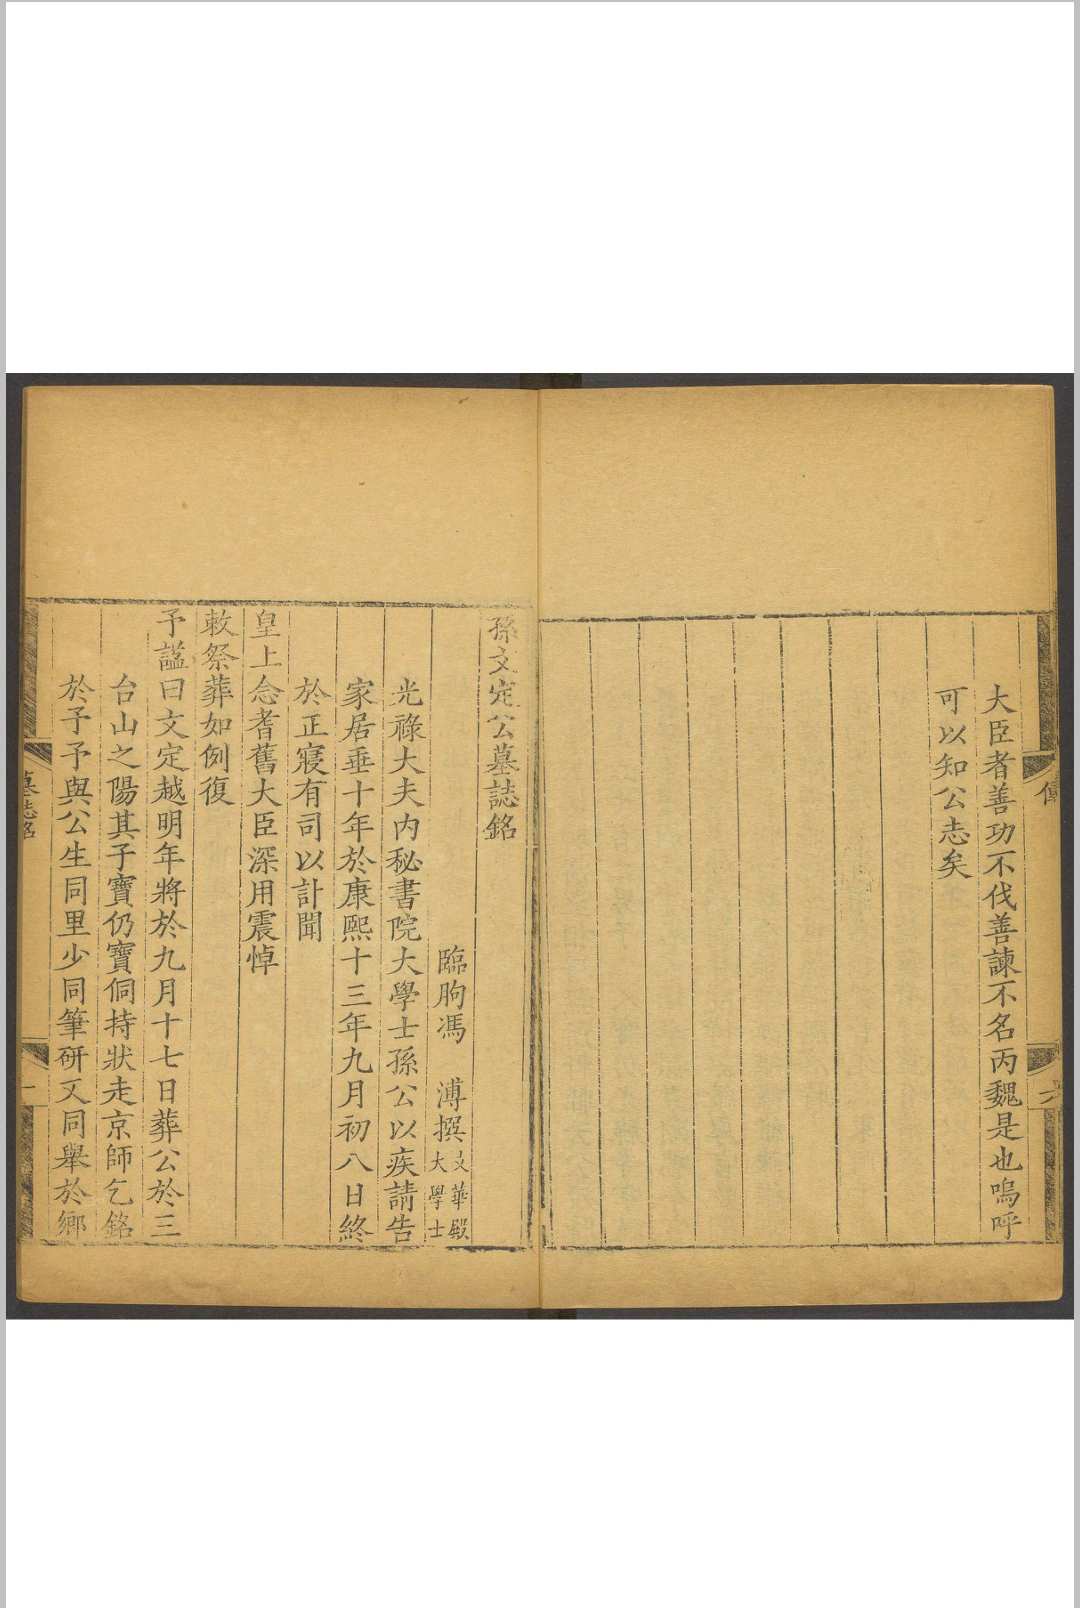 大臣者善功不伐善諫不名丙魏是也嗚呼
可以知公志矣
傳
六
孫文定公墓誌銘
臨朐馮　溥撰文華殿大學士
光祿大夫内秘書院大學士孫公以疾請告
家居垂十年於康熙十三年九月初八日終
於正寢有司以訃聞
皇上念耆舊大臣深用震悼
敕祭葬如例復
予謚曰文定越明年將於九月十七日葬公於三
台山之陽其子寶仍寶侗持狀走京師乞銘
於予予與公生同里少同筆研又同舉於鄉
墓誌銘
一